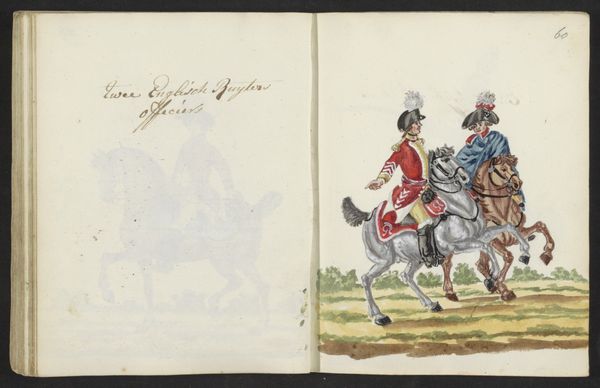 twee Englisch Ruyter
officiers
60